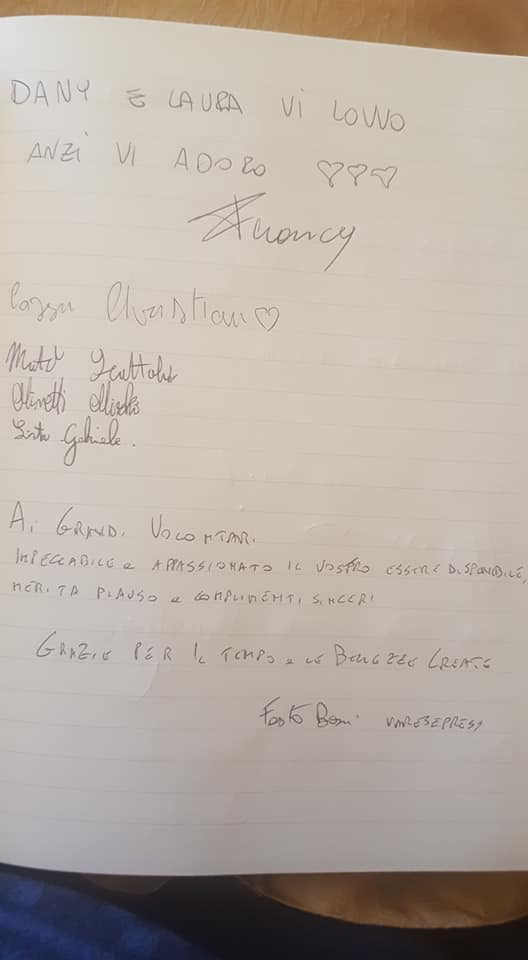 DANY E LAURA VI LOVVO
ANZI VI ADORO
Nancy
Christian
Gabriele.
Ai GRANDI VOLONTARI
IMPECCABILE e APPASSIONATO IL VOSTRO ESSERE DISPONIBILE,
MERITA PLAUSO e COMPLIMENTI SINCERI
GRAZIE PER IL TEMPO e LE BELLEZZE CREATE
VARESEPRESS